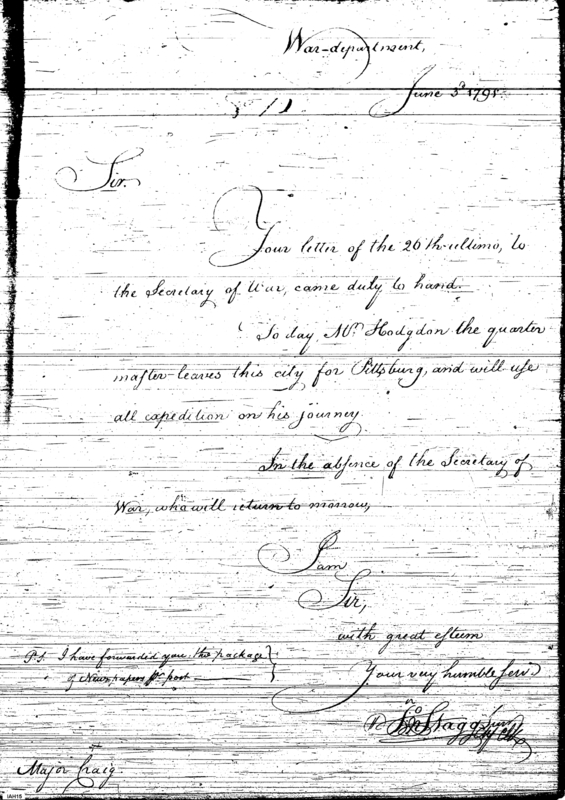 War-department,
June 3d 1791
Sir.
Your letter of the 26th ultimo, to
the Secretary of War, came duly to hand.
To day Mr. Hodgdon the quarter
master leaves this city for Pittsburg, and will use
all expedition on his journey.
In the absence of the Secretary of
War, who will return to morrow,
I am
Sir,
with great esteem
Your very humble Serv
P.S. I have forwarded you the package
of News papers per post
Jno Stagg Junr
Major Craig
IAH15